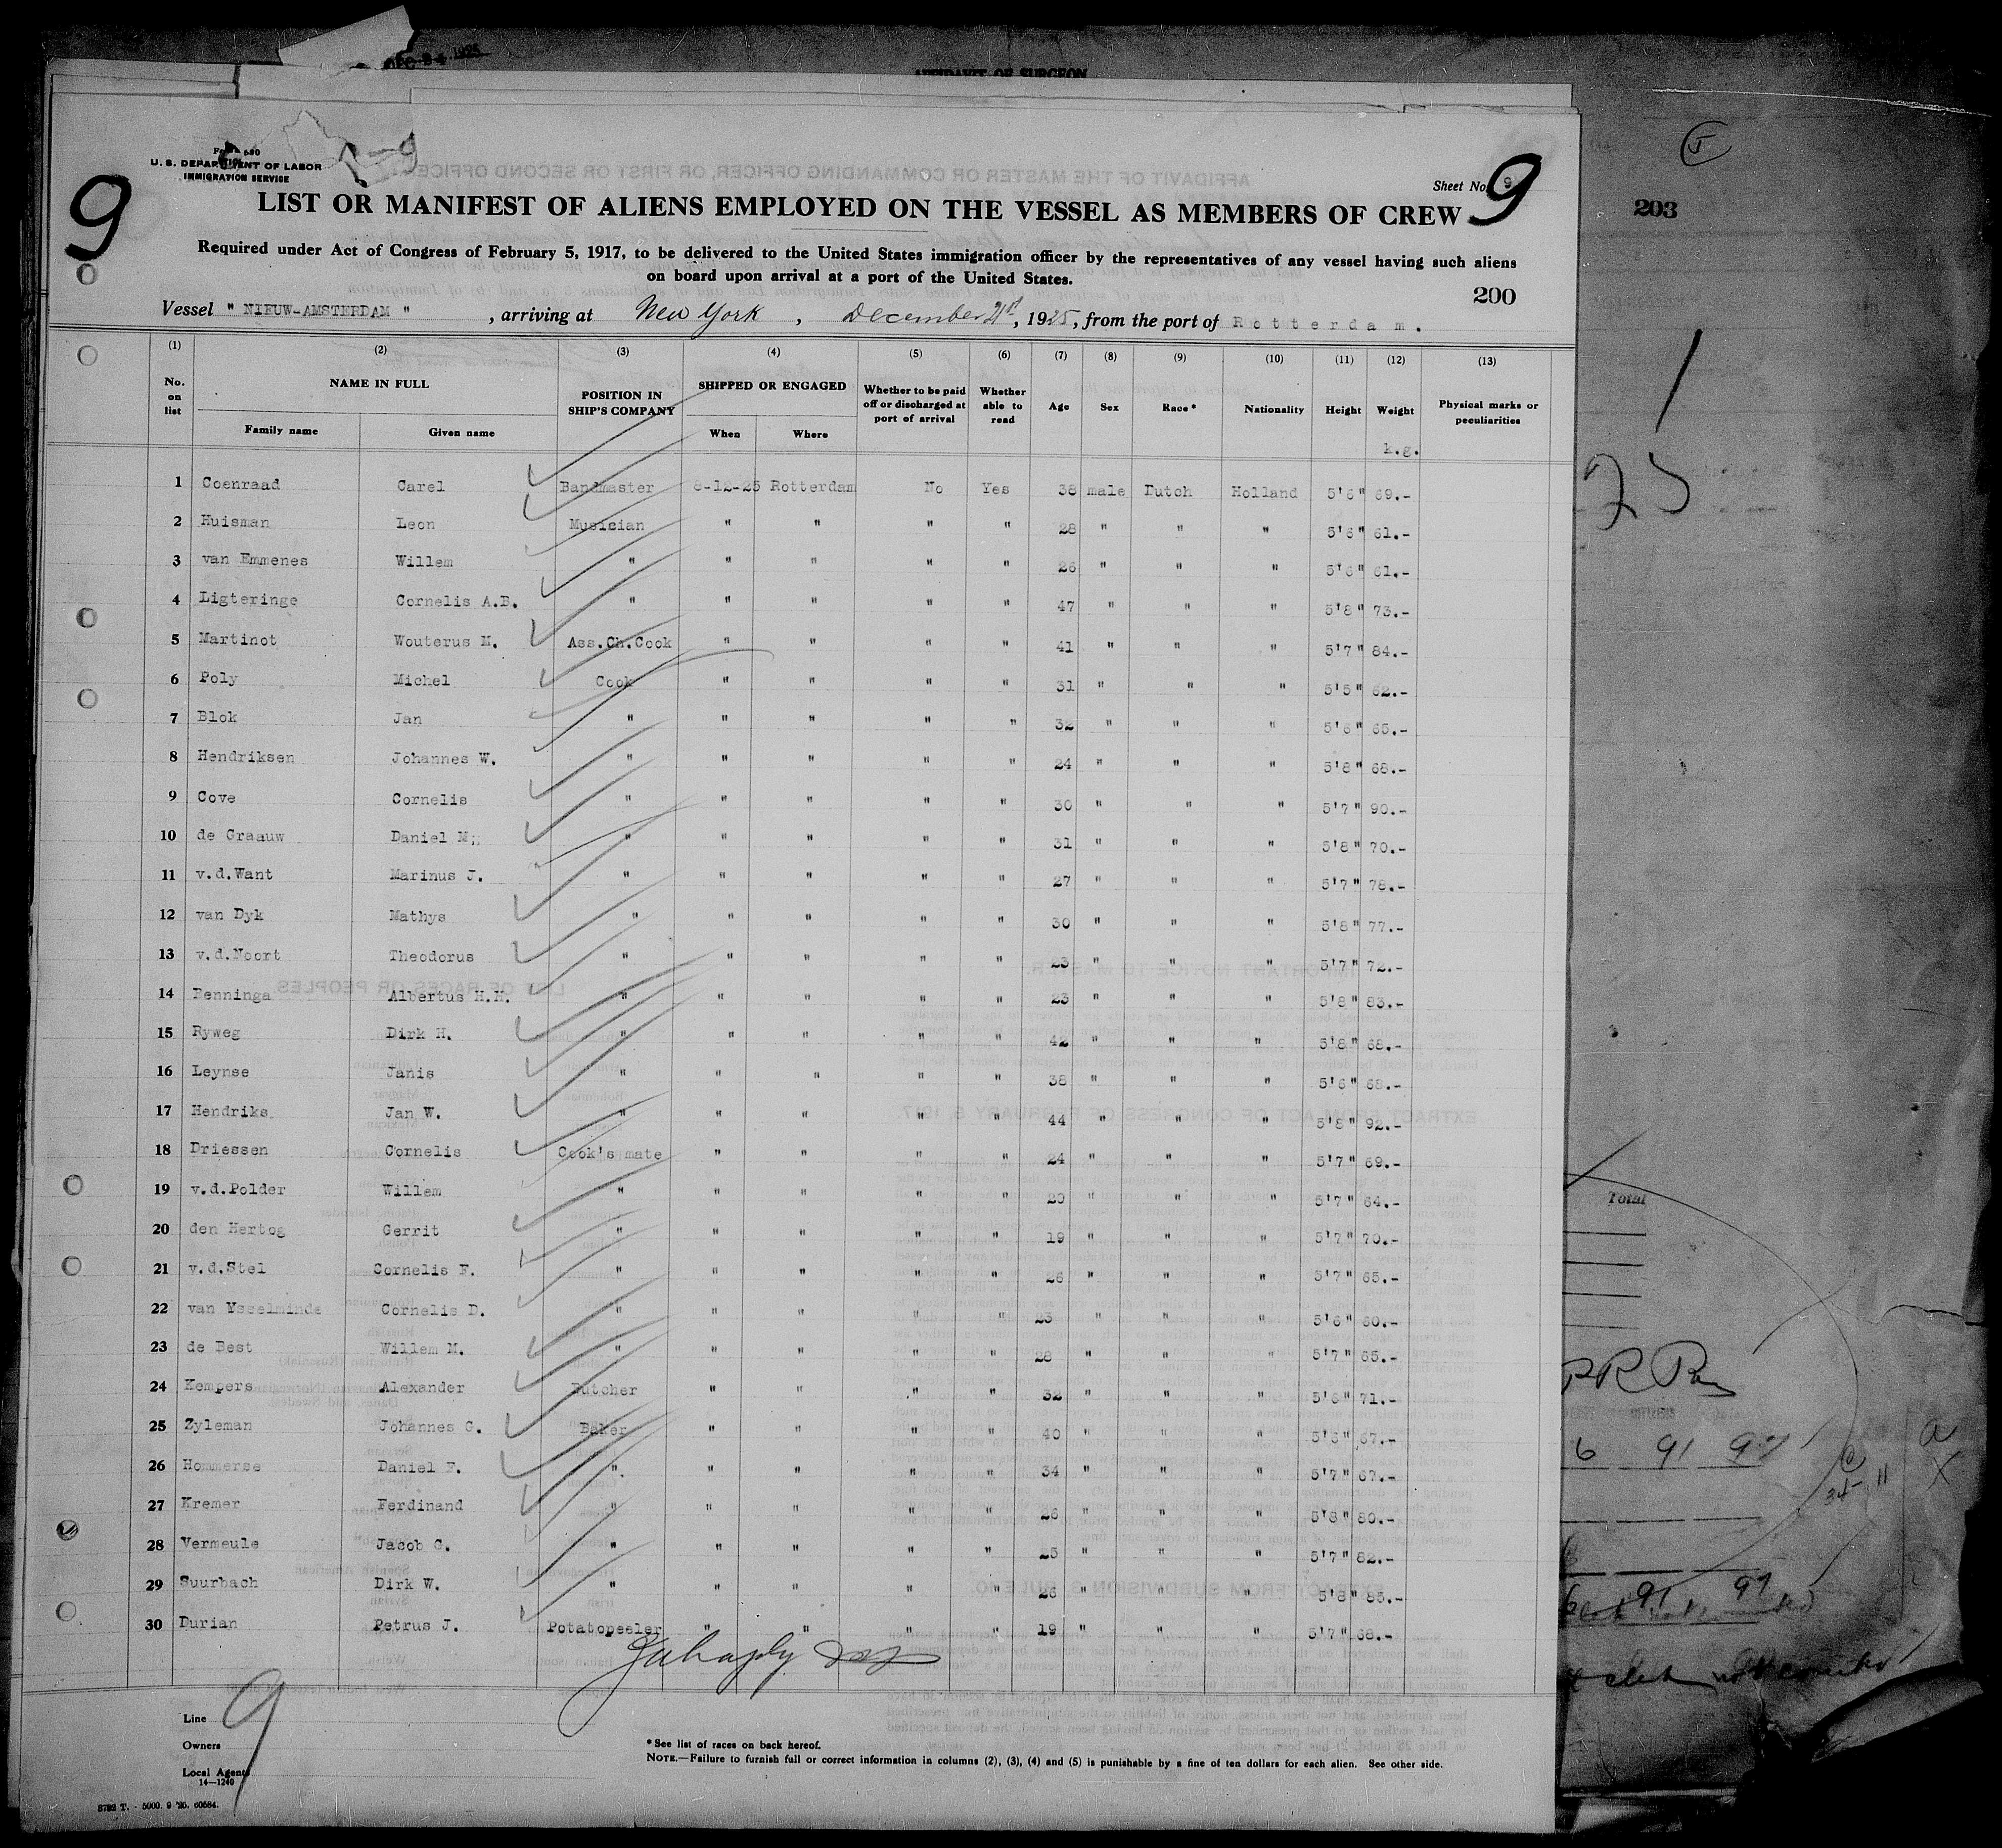 DEC 24 1925
AFFIDAVIT OF SURGEON
Form 680
U. S. DEPARTMENT OF LABOR
IMMIGRATION SERVICE
9
Sheet No. 9
9
203
LIST OR MANIFEST OF ALIENS EMPLOYED ON THE VESSEL AS MEMBERS OF CREW
Required under Act of Congress of February 5, 1917, to be delivered to the United States immigration officer by the representatives of any vessel having such aliens
on board upon arrival at a port of the United States.
200
Vessel " NIEUW-AMSTERDAM " , arriving at New York , December 21st, 1925, from the port of Rotterdam.
(1) (2) (3) (4) (5) (6) (7) (8) (9) (10) (11) (12) (13)
No. on list NAME IN FULL Family name Given name POSITION IN SHIP'S COMPANY SHIPPED OR ENGAGED When Where Whether to be paid off or discharged at port of arrival Whether able to read Age Sex Race* Nationality Height Weight Physical marks or peculiarities
k.g.
1 Coenraad Carel Bandmaster 8-12-25 Rotterdam No Yes 38 male Dutch Holland 5'6" 69.-
2 Huisman Leon Musician " " " " 28 " " " 5'6" 61.-
3 van Emmenes Willem " " " " " 26 " " " 5'6" 61.-
4 Ligteringe Cornelis A.B. " " " " " 47 " " " 5'8" 73.-
5 Martinot Wouterus M. Ass.Ch.Cook " " " " 41 " " " 5'7" 84.-
6 Poly Michel Cook " " " " 31 " " " 5'5" 62.-
7 Blok Jan " " " " " 32 " " " 5'6" 65.-
8 Hendriksen Johannes W. " " " " " 24 " " " 5'8" 68.-
9 Cove Cornelis " " " " " 30 " " " 5'7" 90.-
10 de Graauw Daniel M; " " " " " 31 " " " 5'8" 70.-
11 v.d.Want Marinus J. " " " " " 27 " " " 5'7" 78.-
12 van Dyk Mathys " " " " " 30 " " " 5'8" 77.-
13 v.d.Noort Theodorus " " " " " 23 " " " 5'7" 72.-
14 Benninga Albertus H.M. " " " " " 23 " " " 5'8" 83.-
15 Ryweg Dirk H. " " " " " 42 " " " 5'8" 68.-
16 Leynse Janis " " " " " 38 " " " 5'6" 68.-
17 Hendriks Jan W. " " " " " 44 " " " 5'8" 92.-
18 Driessen Cornelis Cook's mate " " " " 24 " " " 5'7" 69.-
19 v.d.Polder Willem " " " " " 20 " " " 5'7" 64.-
20 den Hertog Gerrit " " " " " 19 " " " 5'7" 70.-
21 v.d.Stel Cornelis F. " " " " " 26 " " " 5'7" 65.-
22 van Ysselminde Cornelis D. " " " " " 23 " " " 5'6" 60.-
23 de Best Willem M. " " " " " 28 " " " 5'7" 65.-
24 Kempers Alexander Butcher " " " " 32 " " " 5'6" 71.-
25 Zyleman Johannes G. Baker " " " " 40 " " " 5'5" 67.-
26 Hommerse Daniel F. " " " " " 34 " " " 5'7" 67.-
27 Kremer Ferdinand " " " " " 26 " " " 5'8" 80.-
28 Vermeule Jacob C. " " " " " 25 " " " 5'7" 82.-
29 Suurbach Dirk W. " " " " " 26 " " " 5'8" 85.-
30 Durian Petrus J. Potatopeeler " " " " 19 " " " 5'7" 68.-
9
Line
Owners
Local Agents
14—1240
*See list of races on back hereof.
NOTE.—Failure to furnish full or correct information in columns (2), (3), (4) and (5) is punishable by a fine of ten dollars for each alien. See other side.
Total
6 91 97
91 97